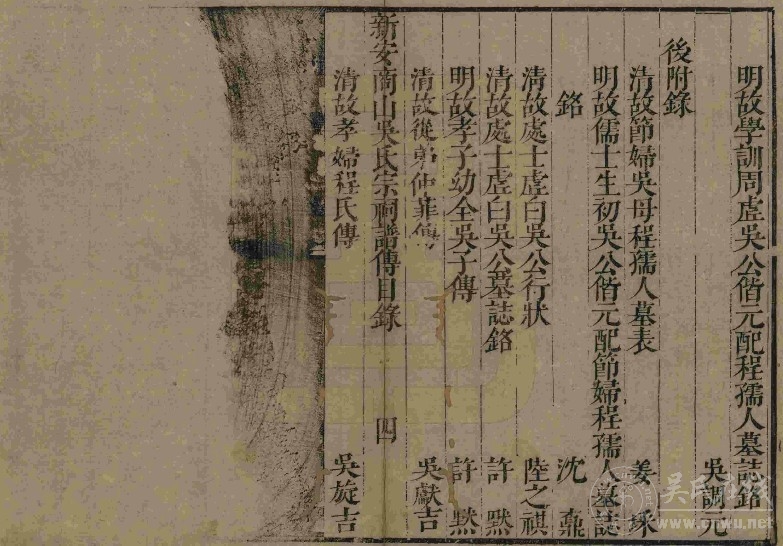 明故學訓周虛吳公偕元配程孺人墓誌銘
吳調元
後附錄
清故節婦吳母程孺人墓表　姜垛
明故儒士生初吳公偕元配節婦程孺人墓誌
銘　沈鼐
清故處士虛白吳公行狀　陸之祺
清故處士虛白吳公墓誌銘　許㸃
明故孝子幼全吳子傳　許㸃
清故從弟仲菲傳　吳獻吉
新安商山吳氏宗祠譜傳目錄　四
清故孝婦程氏傳　吳旋吉
吳氏
www.cnwu.net